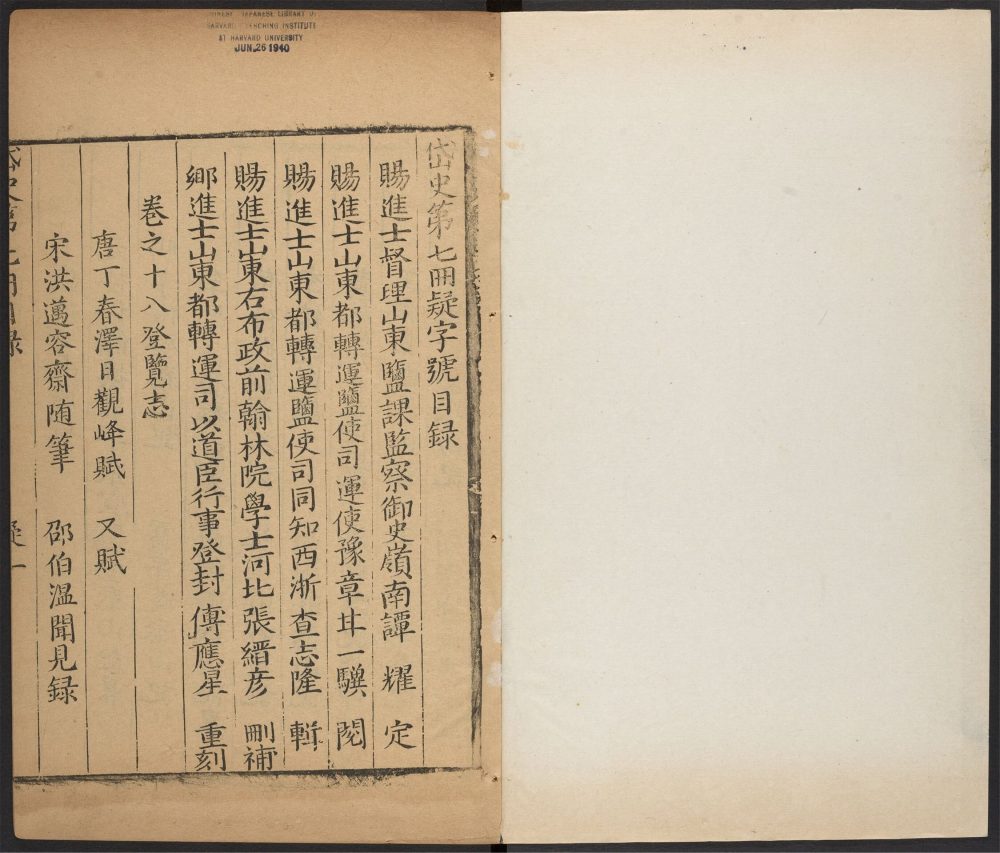 CHINESE JAPANESE LIBRARY OF
HARVARD YENCHING INSTITUTE
AT HARVARD UNIVERSITY
JUN 26 1940
岱史第七冊疑字號目録
賜進士督理山東鹽課監察御史嶺南譚　耀　定
賜進士山東都轉運鹽使司運使豫章甘一驥　閱
賜進士山東都轉運鹽使司同知西浙查志隆　輯
賜進士山東右布政前翰林院學士河北張縉彦　刪補
鄉進士山東都轉運司以道臣行事登封傅應星　重刻
卷之十八登覽志
唐丁春澤日觀峰賦　又賦
宋洪邁容齋随筆　邵伯溫聞見録
岱史第七冊目録　疑一